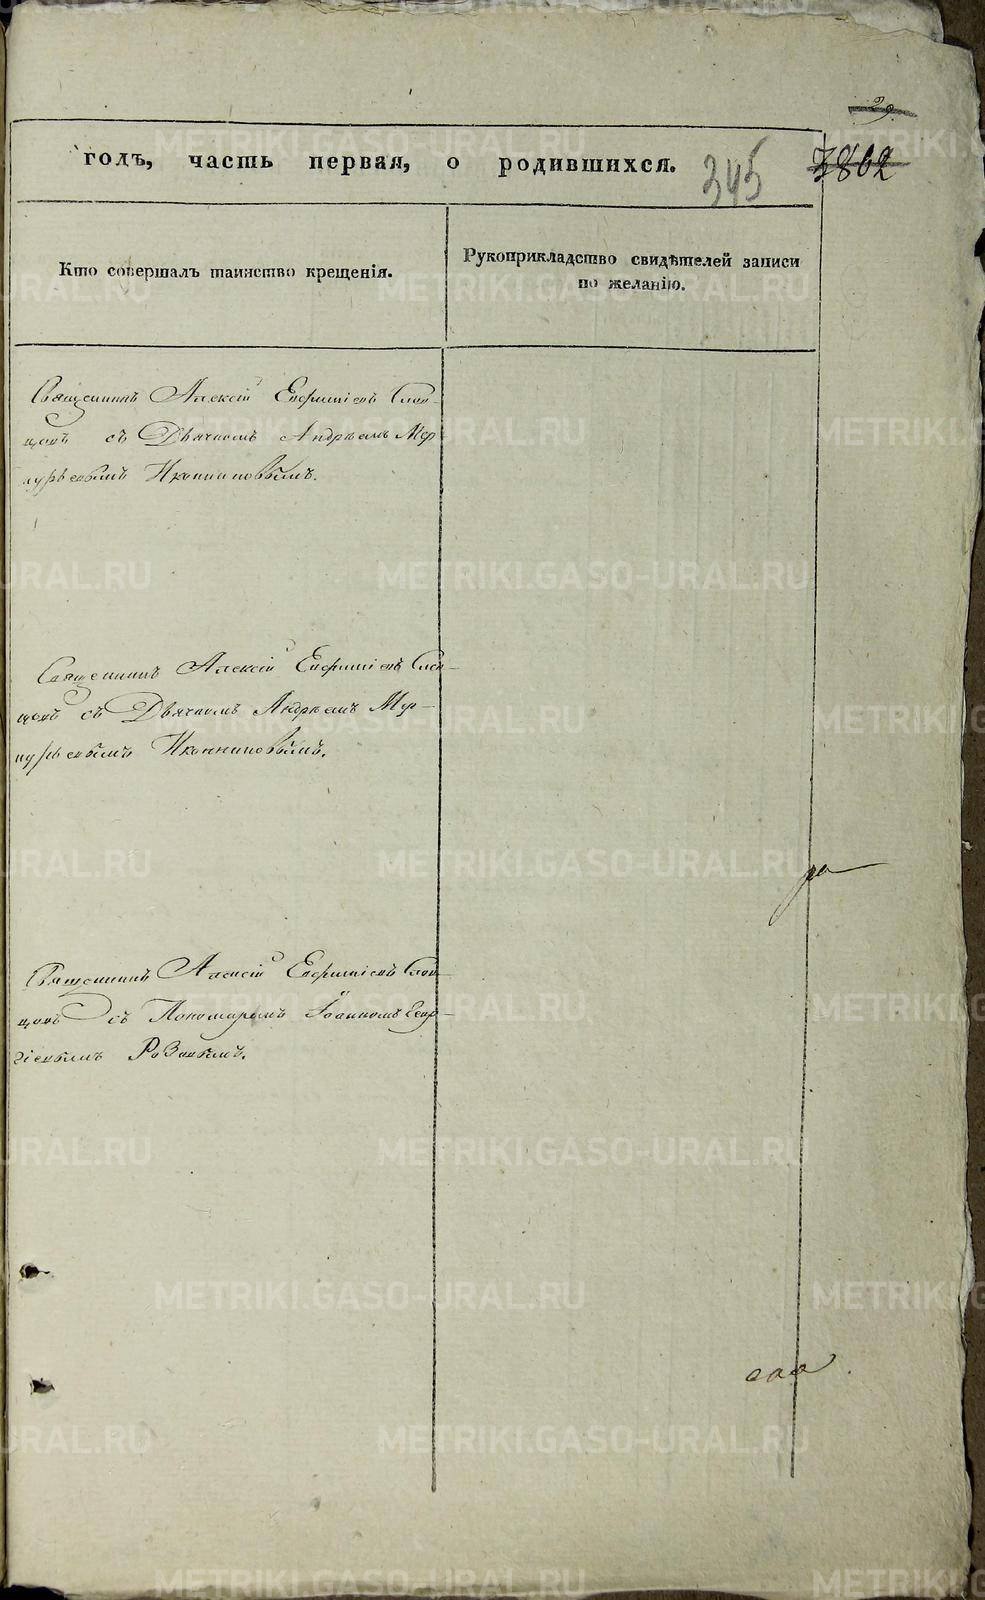 29.
годъ, часть первая, о родившихся. 345 3862
Кто совершалъ таинство крещенія.
Рукоприкладство свидѣтелей записи
по желанію.
Священникъ Алексій Евфиміевъ Слов-
цовъ съ Дьячкомъ Андрѣемъ Мер-
курьевымъ Иконниковымъ.
Священникъ Алексій Евфиміевъ Слов-
цовъ съ Дьячкомъ Андрѣемъ Мер-
курьевымъ Иконниковымъ.
ра
Священникъ Алексій Евфиміевъ Слов-
цовъ съ Пономаремъ Іоанномъ Геор-
гіевымъ Розовымъ.
METRIKI.GASO-URAL.RU